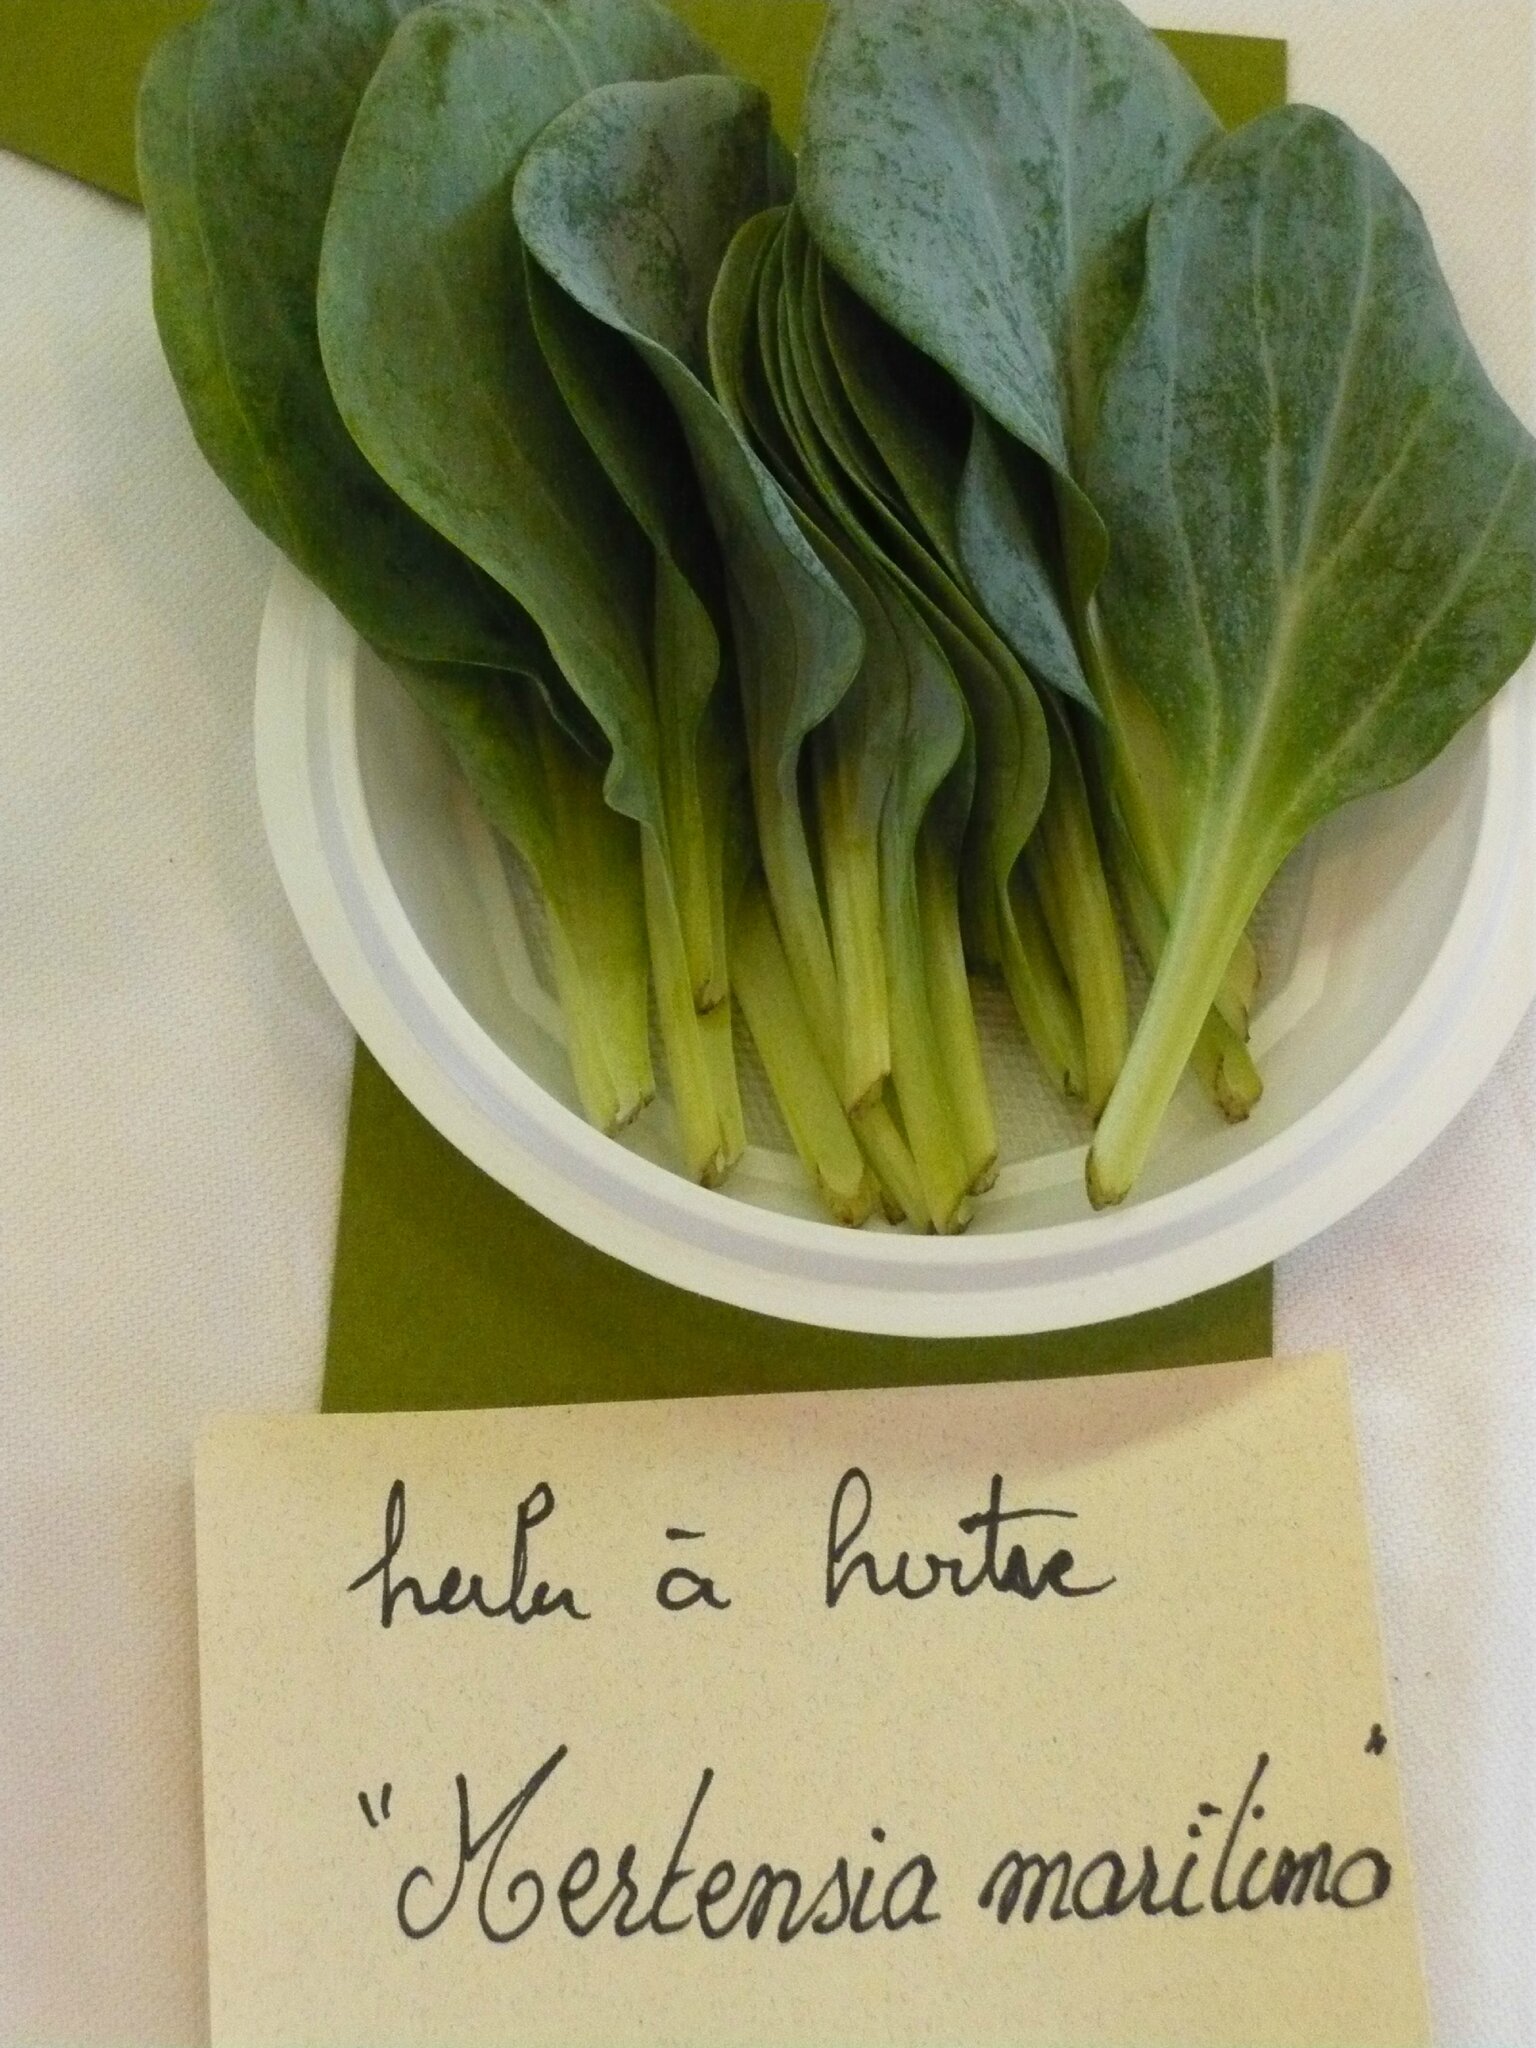 herbe à huitre
"Mertensia maritima"